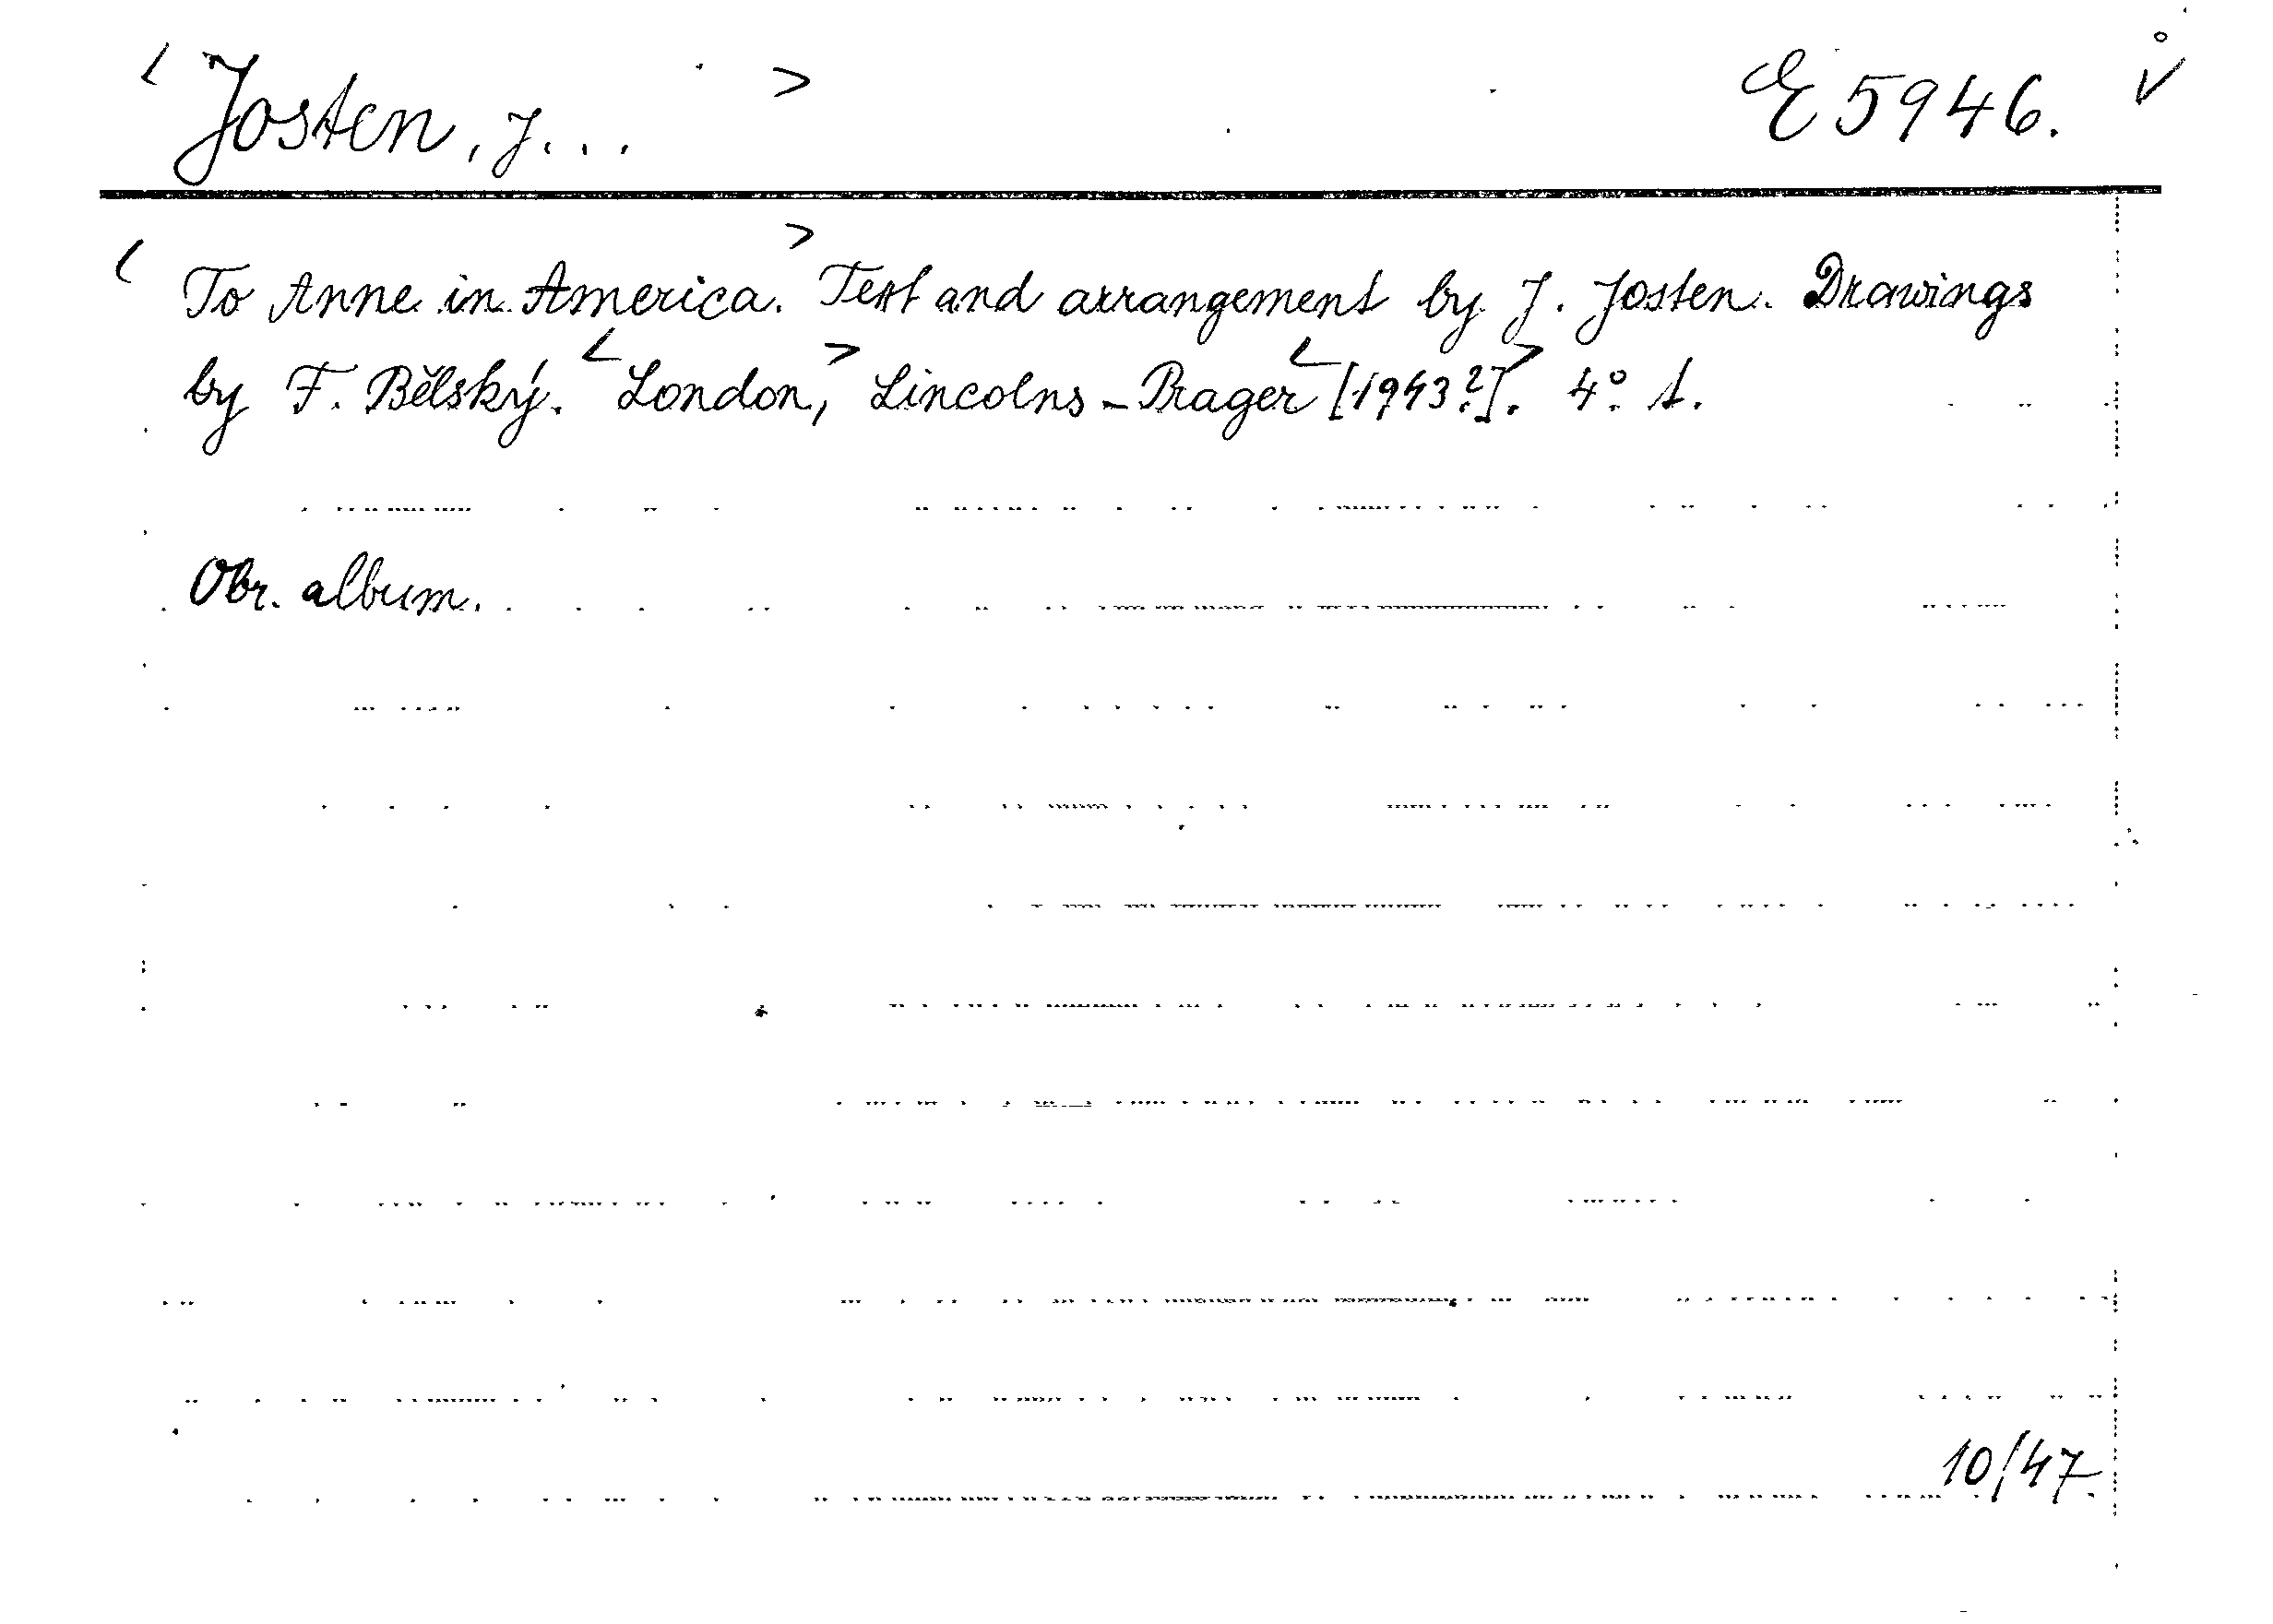 < Josten, J... > E 5946.
< To Anne in America. > Text and arrangement by J. Josten. Drawings
by F. Bělský. < London, > Lincolns-Prager < [1943?]. > 4° s.
Obr. album.
10/47.